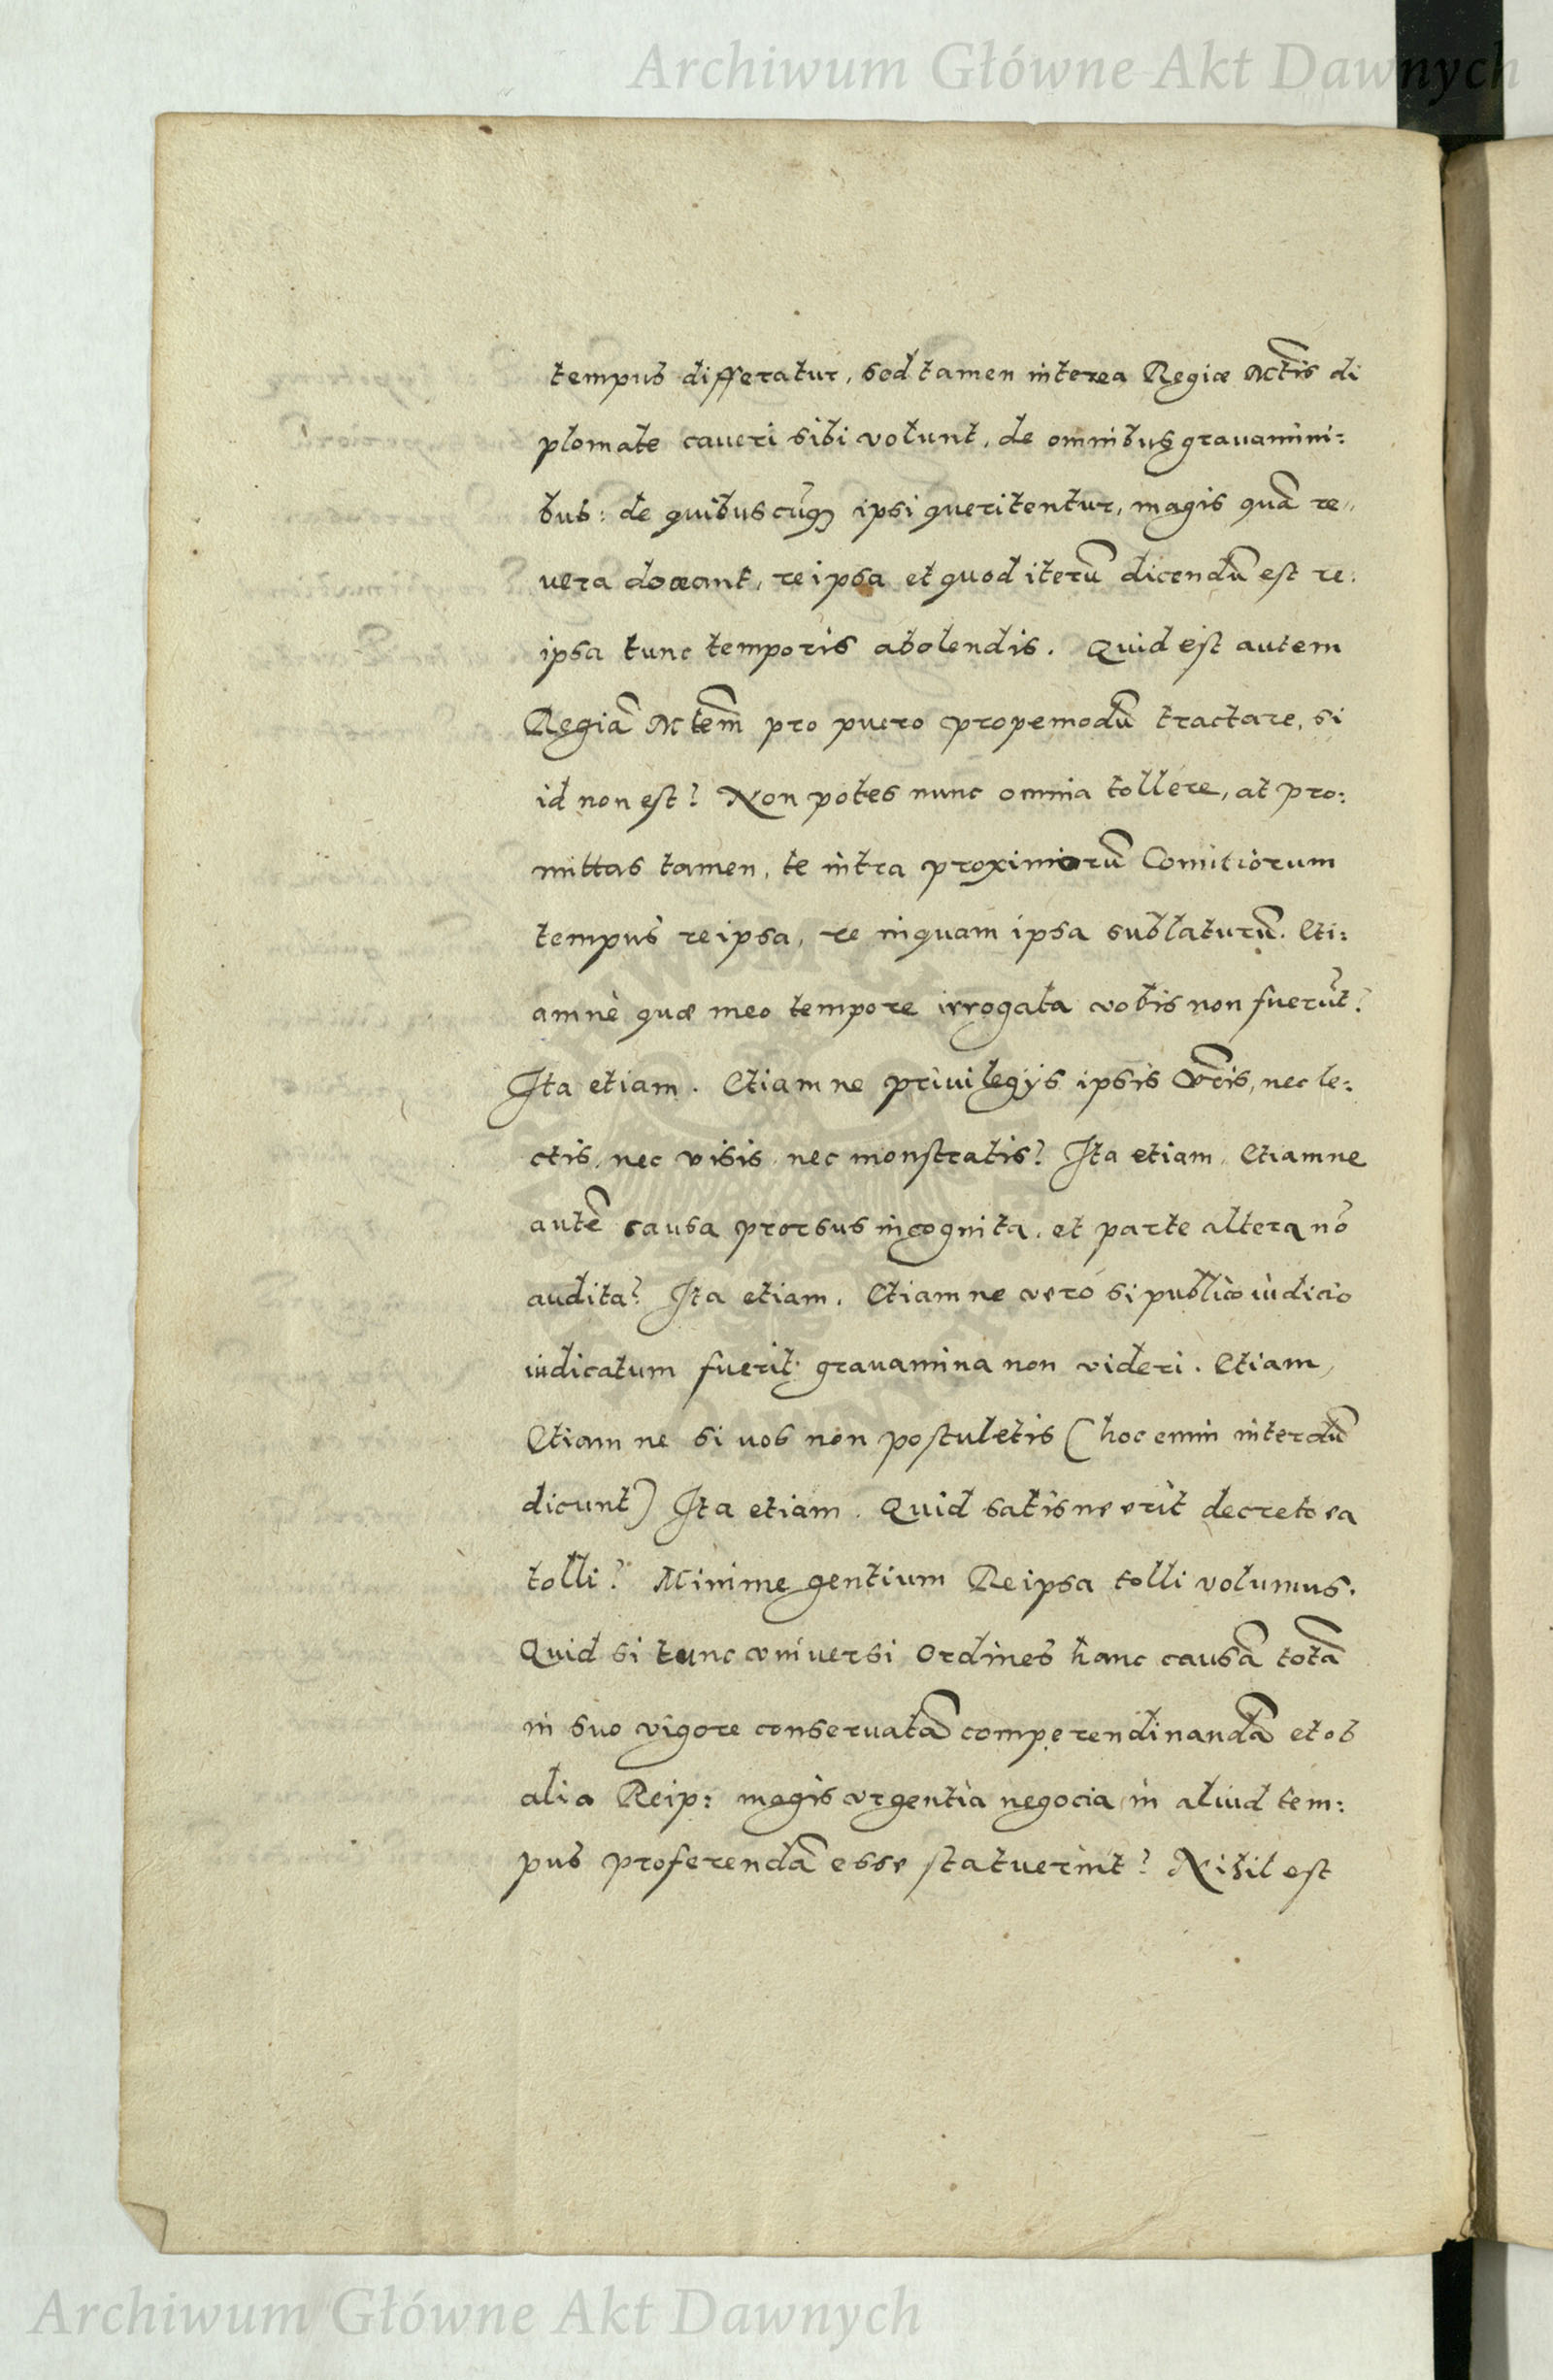 Archiwum Główne Akt Dawnych
tempus differatur, sed tamen interea Regiæ Mtis di
plomate caueri sibi volunt, de omnibus grauamini:
bus: de quibuscũqꝫ ipsi queritentur, magis quã re„
uera doceant, reipsa et quod iterũ dicendũ est re:
ipsa tunc temporis abolendis. Quid est autem
Regiã Mtem̃ pro puero propemodũ tractare, si
id non est? Non potes nunc omnia tollere, at pro:
mittas tamen, te intra proximiorũ Comitiorum
tempus reipsa, re inquam ipsa sublaturũ. Eti:
amnè quæ meo tempore irrogata vobis non fuerũt?
Ita etiam. Etiamne priuilegijs ipsis vr̃is, nec le:
ctis, nec visis nec monstratis? Ita etiam. Etiamne
autẽ causa prorsus incognita, et parte altera nõ
audita? Ita etiam. Etiamne vero si publico iudicio
iudicatum fuerit grauamina non videri. Etiam,
Etiam ne si uos non postuletis (hoc enim interdũ
dicunt) Ita etiam. Quid satisne erit decreto ea
tolli? Minime gentium Reipsa tolli volumus.
Quid si tunc vniuersi Ordines hanc causã totã
in suo vigore conseruatã comperendinandã et ob
alia Reip: magis vrgentia negocia in aliud tem:
pus proferendã esse statuerint? Nihil est
Archiwum Główne Akt Dawnych